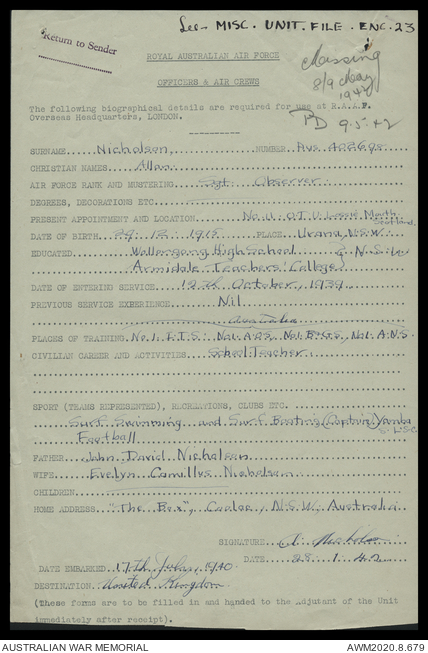 See MISC. UNIT. FILE. ENC. 23
Return to Sender
ROYAL AUSTRALIAN AIR FORCE
Missing
8/9 May
1942
OFFICERS & AIR CREWS
The following biographical details are required for use at R.A.A.F.
Overseas Headquarters, LONDON.
PD 9.5.42
SURNAME Nicholson NUMBER Aus. 402695
CHRISTIAN NAMES Allan
AIR FORCE RANK AND MUSTERING Sgt Observer
DEGREES, DECORATIONS ETC
PRESENT APPOINTMENT AND LOCATION No. 11 O.T.U. North
Scotland
DATE OF BIRTH 29. 12. 1915 PLACE Urana, N.S.W.
EDUCATED Wollongong High School } N.S.W
Armidale Teachers' College }
DATE OF ENTERING SERVICE 12th October, 1939
PREVIOUS SERVICE EXPERIENCE Nil
Australia
PLACES OF TRAINING No.1. I.T.S. No1. A.O.S. No1. B.&G.S. No1. A.N.S.
CIVILIAN CAREER AND ACTIVITIES School Teacher
SPORT (TEAMS REPRESENTED), RECREATIONS, CLUBS ETC.
Surf Swimming and Surf Boating (Captain) Yamba
S.L.S.C.
Football
FATHER John David Nicholson
WIFE Evelyn Camillus Nicholson
CHILDREN
HOME ADDRESS "The Box", N.S.W. Australia
SIGNATURE A Nicholson
DATE 28. 1. 42
DATE EMBARKED 17th July, 1940
DESTINATION United Kingdom
(These forms are to be filled in and handed to the Adjutant of the Unit
immediately after receipt).
AUSTRALIAN WAR MEMORIAL
AWM2020.8.679